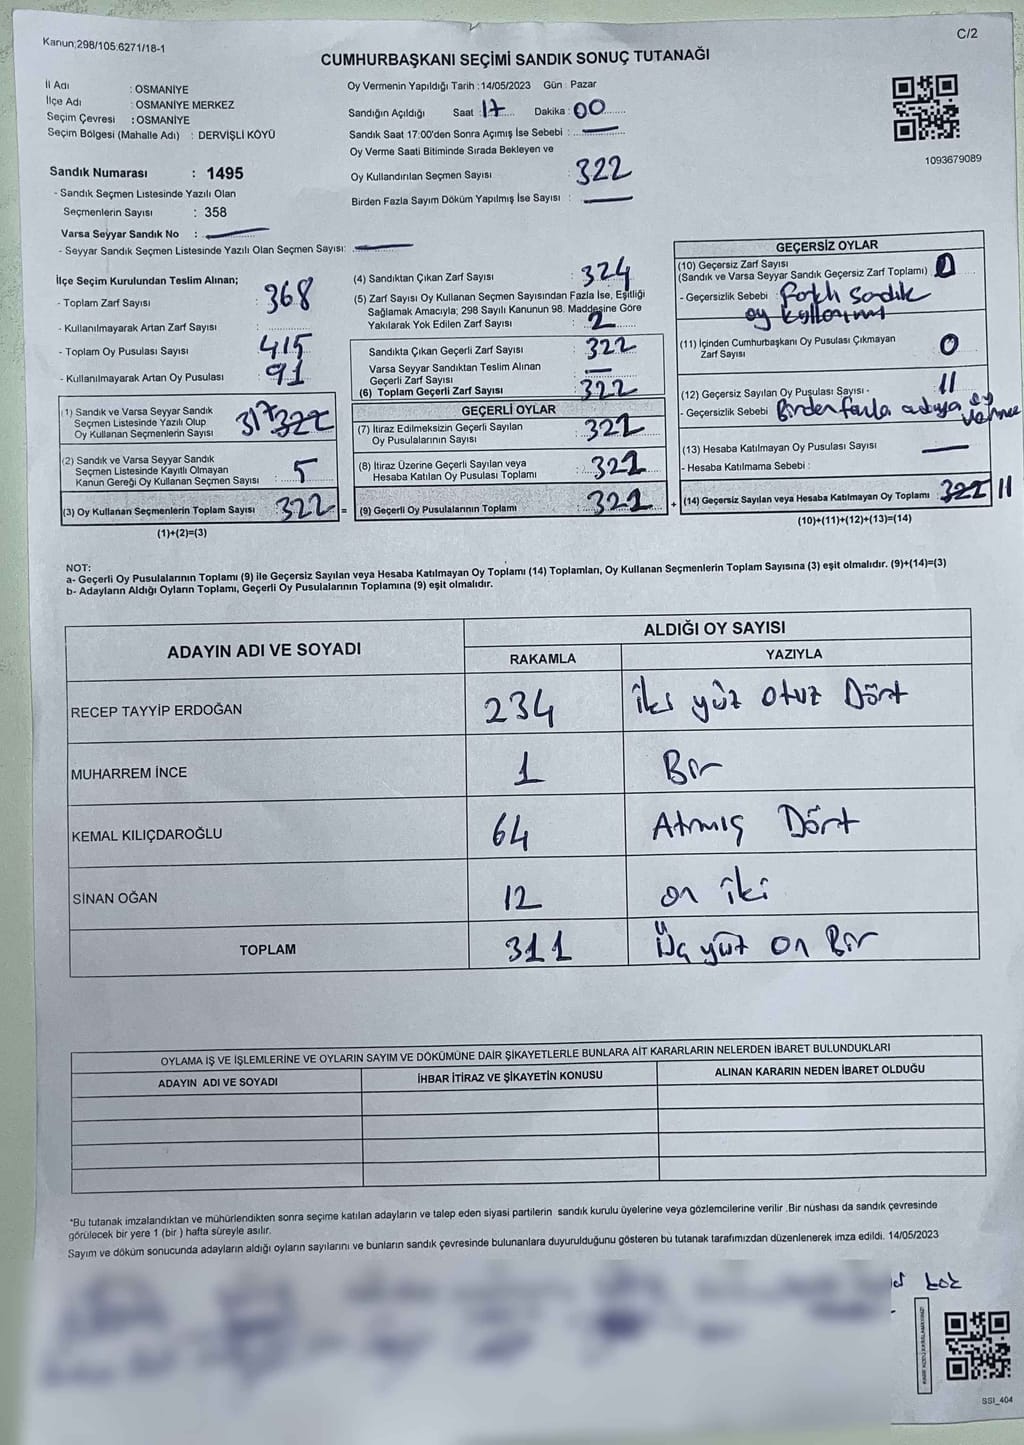 Kanun;298/105.6271/18-1
C/2
CUMHURBAŞKANI SEÇİMİ SANDIK SONUÇ TUTANAĞI
İl Adı : OSMANİYE
İlçe Adı : OSMANİYE MERKEZ
Seçim Çevresi : OSMANİYE
Seçim Bölgesi (Mahalle Adı) : DERVİŞLİ KÖYÜ
Sandık Numarası : 1495
- Sandık Seçmen Listesinde Yazılı Olan
Seçmenlerin Sayısı : 358
Varsa Seyyar Sandık No :
- Seyyar Sandık Seçmen Listesinde Yazılı Olan Seçmen Sayısı:
Oy Vermenin Yapıldığı Tarih : 14/05/2023 Gün : Pazar
Sandığın Açıldığı Saat : 17 Dakika : 00
Sandık Saat 17:00'den Sonra Açımış İse Sebebi :
Oy Verme Saati Bitiminde Sırada Bekleyen ve
Oy Kullandırılan Seçmen Sayısı : 322
Birden Fazla Sayım Döküm Yapılmış İse Sayısı :
1093679089
İlçe Seçim Kurulundan Teslim Alınan;
- Toplam Zarf Sayısı : 368
- Kullanılmayarak Artan Zarf Sayısı :
- Toplam Oy Pusulası Sayısı : 415
- Kullanılmayarak Artan Oy Pusulası : 91
(1) Sandık ve Varsa Seyyar Sandık
Seçmen Listesinde Yazılı Olup
Oy Kullanan Seçmenlerin Sayısı 317 322
(2) Sandık ve Varsa Seyyar Sandık
Seçmen Listesinde Kayıtlı Olmayan
Kanun Gereği Oy Kullanan Seçmen Sayısı : 5
(3) Oy Kullanan Seçmenlerin Toplam Sayısı 322 =
(1)+(2)=(3)
(4) Sandıktan Çıkan Zarf Sayısı : 324
(5) Zarf Sayısı Oy Kullanan Seçmen Sayısından Fazla İse, Eşitliği
Sağlamak Amacıyla; 298 Sayılı Kanunun 98. Maddesine Göre
Yakılarak Yok Edilen Zarf Sayısı : 2
Sandıkta Çıkan Geçerli Zarf Sayısı : 322
Varsa Seyyar Sandıktan Teslim Alınan
Geçerli Zarf Sayısı
(6) Toplam Geçerli Zarf Sayısı 322
GEÇERLİ OYLAR
(7) İtiraz Edilmeksizin Geçerli Sayılan
Oy Pusulalarının Sayısı : 321
(8) İtiraz Üzerine Geçerli Sayılan veya
Hesaba Katılan Oy Pusulası Toplamı : 321
(9) Geçerli Oy Pusulalarının Toplamı : 321 +
GEÇERSİZ OYLAR
(10) Geçersiz Zarf Sayısı
(Sandık ve Varsa Seyyar Sandık Geçersiz Zarf Toplamı) 0
- Geçersizlik Sebebi : farklı sandık
oy kullanımı
(11) İçinden Cumhurbaşkanı Oy Pusulası Çıkmayan
Zarf Sayısı 0
(12) Geçersiz Sayılan Oy Pusulası Sayısı - 11
- Geçersizlik Sebebi Birden fazla adaya oy
verme
(13) Hesaba Katılmayan Oy Pusulası Sayısı
- Hesaba Katılmama Sebebi :
(14) Geçersiz Sayılan veya Hesaba Katılmayan Oy Toplamı 11
(10)+(11)+(12)+(13)=(14)
NOT:
a- Geçerli Oy Pusulalarının Toplamı (9) ile Geçersiz Sayılan veya Hesaba Katılmayan Oy Toplamı (14) Toplamları, Oy Kullanan Seçmenlerin Toplam Sayısına (3) eşit olmalıdır. (9)+(14)=(3)
b- Adayların Aldığı Oyların Toplamı, Geçerli Oy Pusulalarının Toplamına (9) eşit olmalıdır.
ADAYIN ADI VE SOYADI
ALDIĞI OY SAYISI
RAKAMLA YAZIYLA
RECEP TAYYİP ERDOĞAN 234 iki yüz otuz Dört
MUHARREM İNCE 1 Bir
KEMAL KILIÇDAROĞLU 64 Atmış Dört
SİNAN OĞAN 12 on iki
TOPLAM 311 Üç yüz on Bir
OYLAMA İŞ VE İŞLEMLERİNE VE OYLARIN SAYIM VE DÖKÜMÜNE DAİR ŞİKAYETLERLE BUNLARA AİT KARARLARIN NELERDEN İBARET BULUNDUKLARI
ADAYIN ADI VE SOYADI İHBAR İTİRAZ VE ŞİKAYETİN KONUSU ALINAN KARARIN NEDEN İBARET OLDUĞU
*Bu tutanak imzalandıktan ve mühürlendikten sonra seçime katılan adayların ve talep eden siyasi partilerin sandık kurulu üyelerine veya gözlemcilerine verilir .Bir nüshası da sandık çevresinde
görülecek bir yere 1 (bir ) hafta süreyle asılır.
Sayım ve döküm sonucunda adayların aldığı oyların sayılarını ve bunların sandık çevresinde bulunanlara duyurulduğunu gösteren bu tutanak tarafımızdan düzenlenerek imza edildi. 14/05/2023
SSI_404